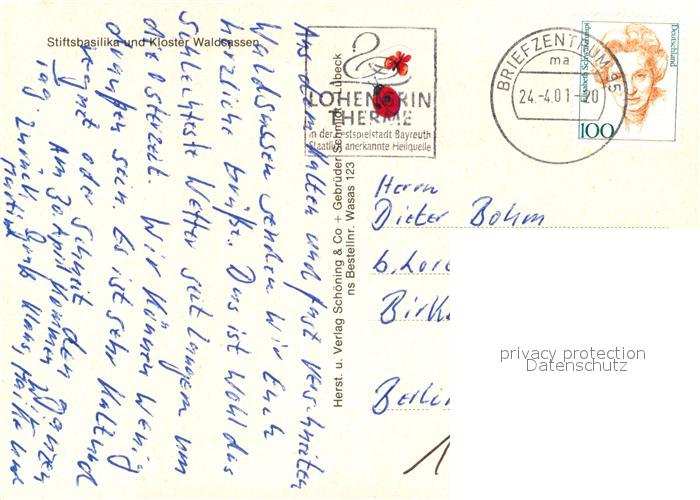 Stiftsbasilika und Kloster Waldsassen
Aus dem kalten und fast verschneiten
Waldsassen senden wir Euch
herzliche Grüße. Das ist wohl das
schlechteste Wetter seit langem um
die Osterzeit. Wir können wenig
draußen sein. Es ist sehr kalt und
regnet oder schneit den ganzen
Tag. Am 30. April kommen wir
zurück. Gruß Klaus, Heike und
Martina
Herst. u. Verlag Schöning & Co + Gebrüder Schmidt, Lübeck
ns Bestellnr. Wasas 123
LOHENGRIN
THERME
in der Festspielstadt Bayreuth
Staatlich anerkannte Heilquelle
BRIEFZENTRUM 95
ma
24.-4.01-20
Elisabeth Schwarzhaupt
Deutschland
100
Herrn
Dieter Bohm
b. Lore
Birke
Berlin
1
privacy protection
Datenschutz